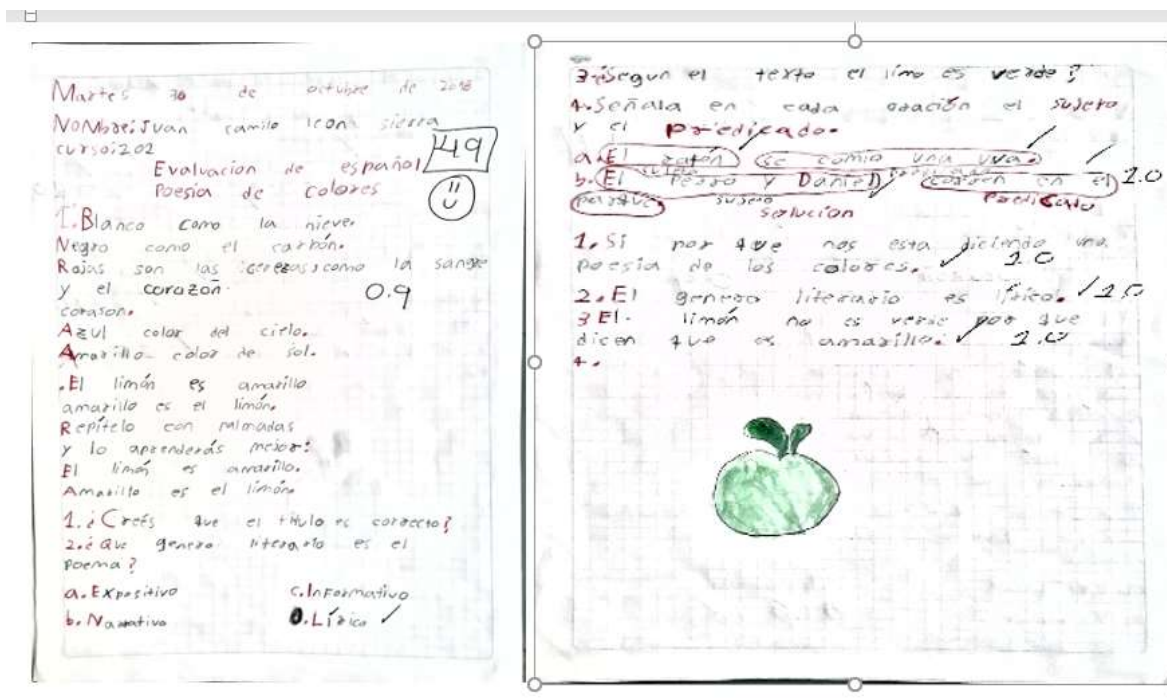 Martes 30 de octubre de 2018
Nombre: Juan camilo leon sierra
curso: 202
49
Evaluacion de español
Poesia de colores
1. Blanco como la nieve.
Negro como el carbón.
Rojas son las cerezas como la sangre
y el corazon.
0.9
corason.
Azul color del cielo.
Amarillo color de sol.
.El limón es amarillo
amarillo es el limón.
Repítelo con palmadas
y lo aprenderás mejor:
El limón es amarillo.
Amarillo es el limón.
1. ¿Creés que el titulo es correcto?
2. ¿Que genero literario es el
poema?
a. Expositivo c. Informativo
b. Narrativo D. Lírico
3. ¿Segun el texto el limo es verde?
4. Señala en cada oración el sujeto
y el predicado.
a. El ratón se comio una uva.
sujeto
b. El Perro y Daniel corren en el 1.0
parque. sujeto Predicado
solucion
1. Si por que nos esta diciendo una
poesia de los colores. 1.0
2. El genero literario es lírico. 1.0
3 El limón no es verde por que
dicen que es amarillo. 1.0
4.